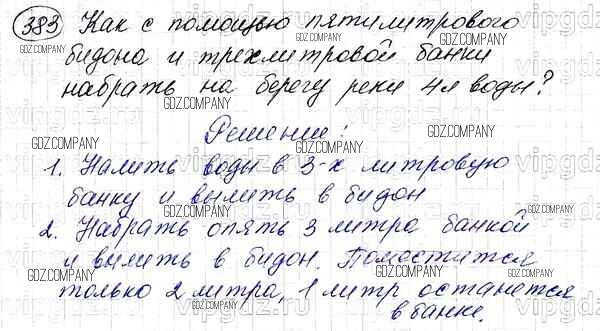 383 Как с помощью пятилитрового
бидона и трехлитровой банки
набрать на берегу реки 4л воды?
Решение:
1. Налить воды в 3-х литровую
банку и вылить в бидон
2. Набрать опять 3 литра банкой
и вылить в бидон. Поместится
только 2 литра, 1 литр останется
в банке.